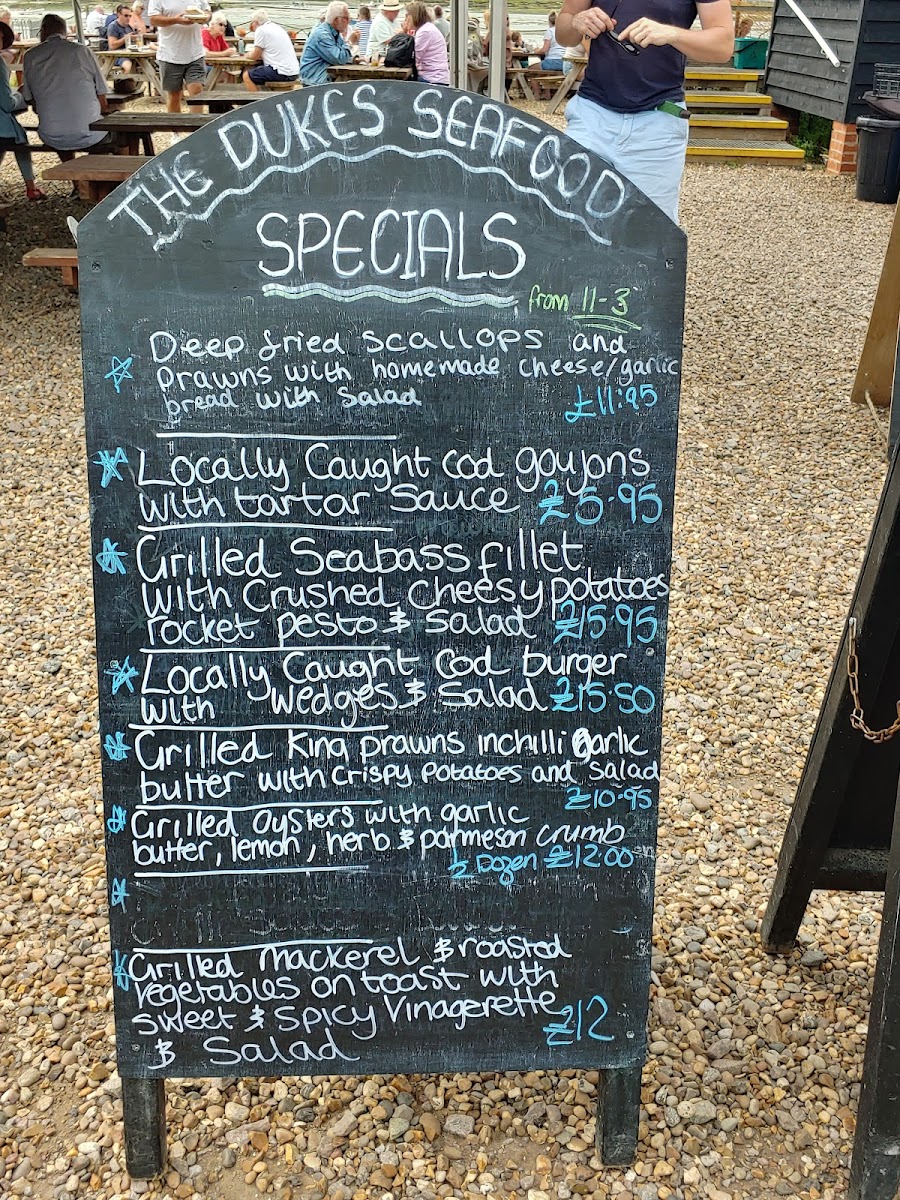 THE DUKES SEAFOOD
SPECIALS
from 11-3
Deep fried scallops and
prawns with homemade cheese/garlic
bread with Salad
£11.95
Locally Caught cod goujons
with tartar Sauce £5.95
Grilled Seabass fillet
with Crushed Cheesy potatoes
rocket pesto & Salad £15.95
Locally Caught Cod burger
with wedges & Salad £15.50
Grilled King prawns in chilli Garlic
butter with crispy potatoes and Salad
£10.95
Grilled Oysters with garlic
butter, lemon, herb & parmeson crumb
½ Dozen £12.00
Grilled Mackerel & roasted
vegetables on toast with
sweet & spicy Vinagerette
& Salad £12